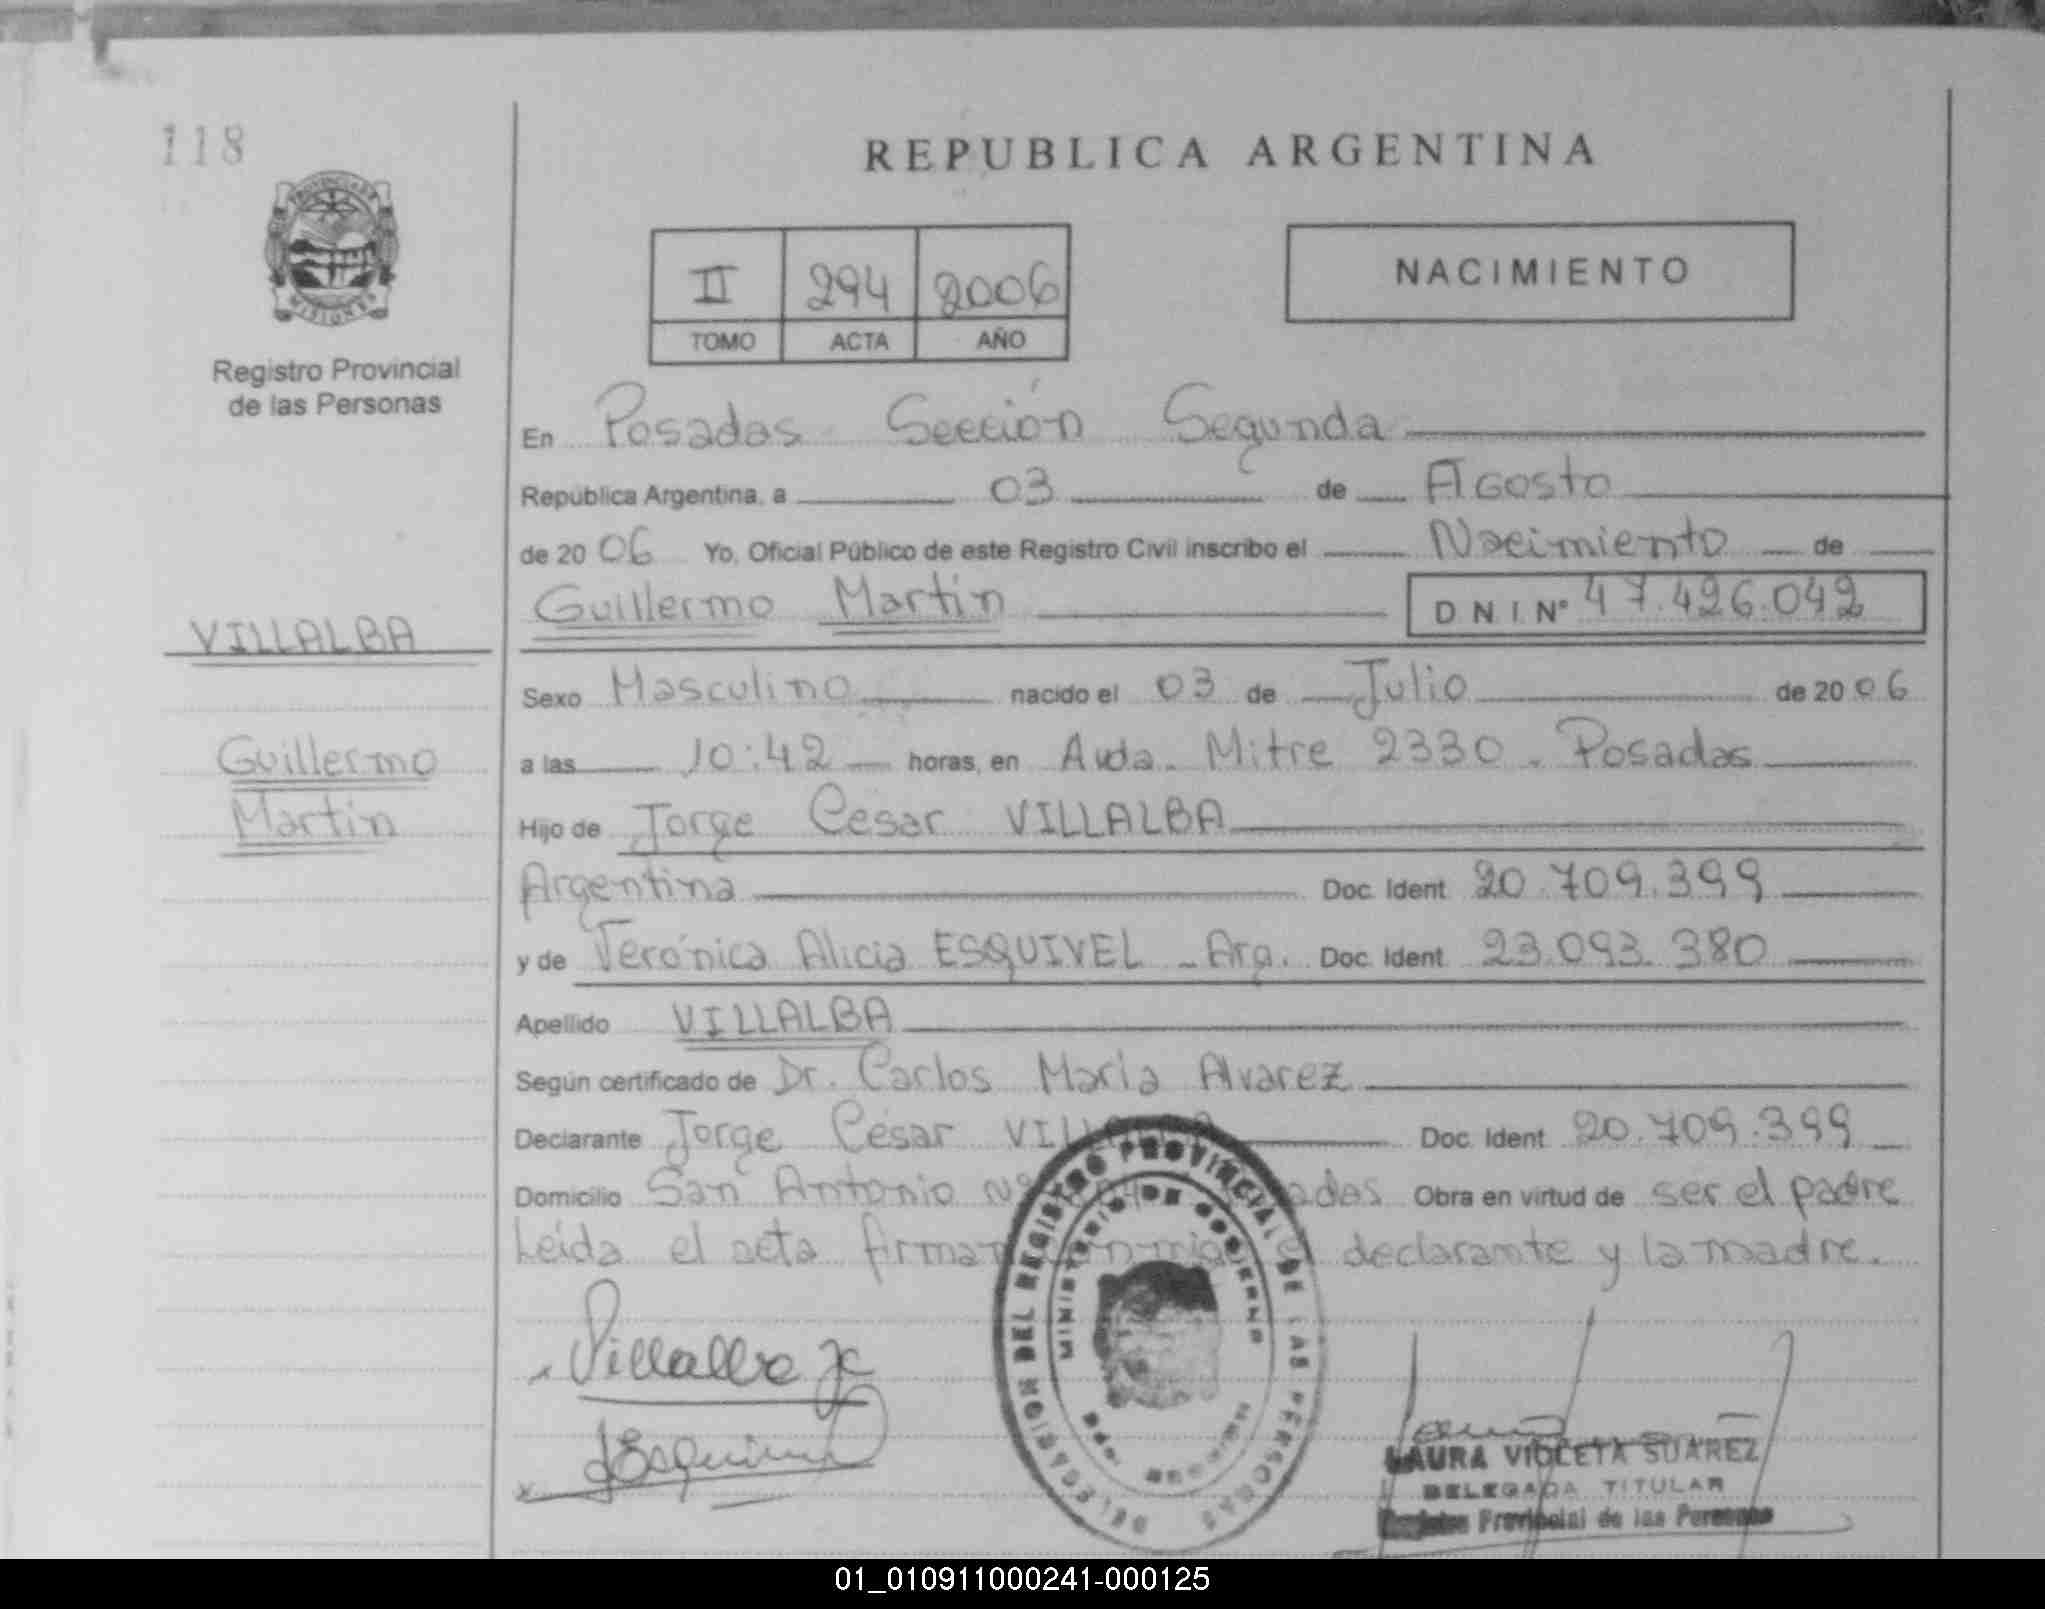 118
REPUBLICA ARGENTINA
PROVINCIA DE
MISIONES
II 294 2006
TOMO ACTA AÑO
NACIMIENTO
Registro Provincial
de las Personas
En Posadas Sección Segunda
República Argentina, a 03 de Agosto
de 2006 Yo, Oficial Público de este Registro Civil inscribo el Nacimiento de
Guillermo Martín D N I Nº 47.426.042
VILLALBA
Sexo Masculino nacido el 03 de Julio de 2006
Guillermo
a las 10:42 horas, en Avda. Mitre 2330 - Posadas
Martín
Hijo de Jorge César VILLALBA
Argentina Doc. Ident. 20.709.399
y de Verónica Alicia ESQUIVEL - Arg. Doc. Ident. 23.093.380
Apellido VILLALBA
Según certificado de Dr. Carlos María Alvarez
Declarante Jorge César VILLALBA Doc. Ident. 20.709.399
Domicilio San Antonio Nº Obra en virtud de ser el padre
Leída el acta firman el declarante y la madre.
Villalba JC
Esquivel
DELEGACION DEL REGISTRO PROVINCIAL DE LAS PERSONAS
MINISTERIO DE GOBIERNO
MISIONES
LAURA VIOLETA SUAREZ
DELEGADA TITULAR
Registro Provincial de las Personas
01_010911000241-000125